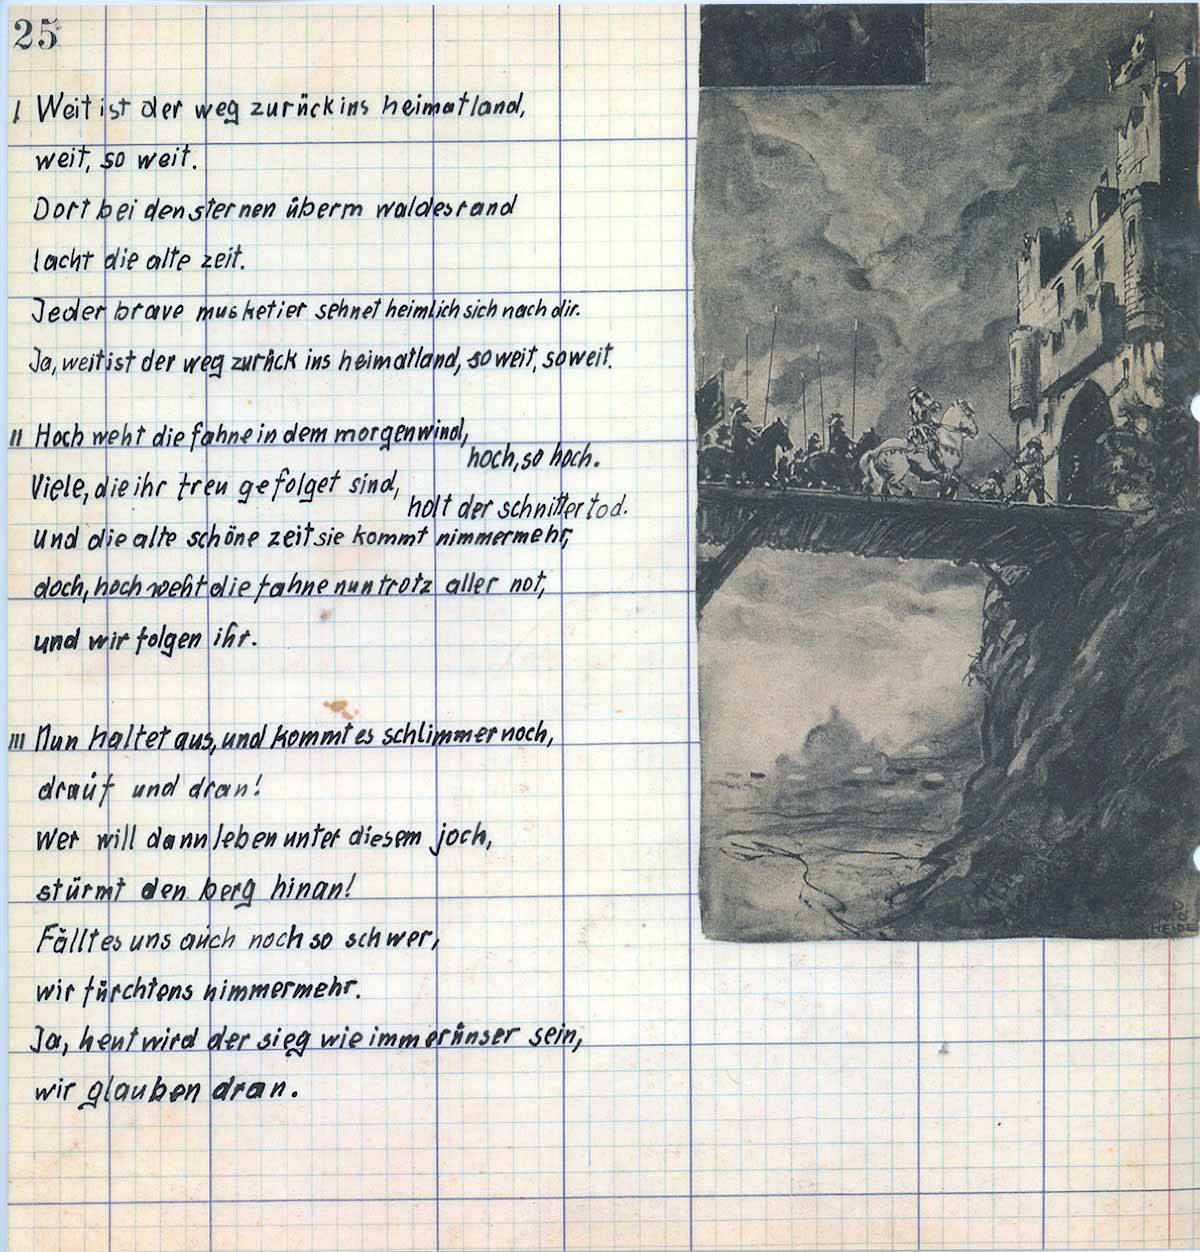 25
I Weit ist der weg zurück ins heimatland,
weit, so weit.
Dort bei den sternen überm waldesrand
lacht die alte zeit.
Jeder brave musketier sehnet heimlich sich nach dir.
Ja, weit ist der weg zurück ins heimatland, so weit, so weit.
II Hoch weht die fahne in dem morgenwind,
hoch, so hoch.
Viele, die ihr treu gefolget sind,
holt der schnitter tod.
und die alte schöne zeit sie kommt nimmermehr,
doch, hoch weht die fahne nun trotz aller not,
und wir folgen ihr.
III Nun haltet aus, und kommt es schlimmer noch,
drauf und dran!
wer will dann leben unter diesem joch,
stürmt den berg hinan!
Fällt es uns auch noch so schwer,
wir fürchtens nimmermehr.
Ja, heut wird der sieg wie immer unser sein,
wir glauben dran.